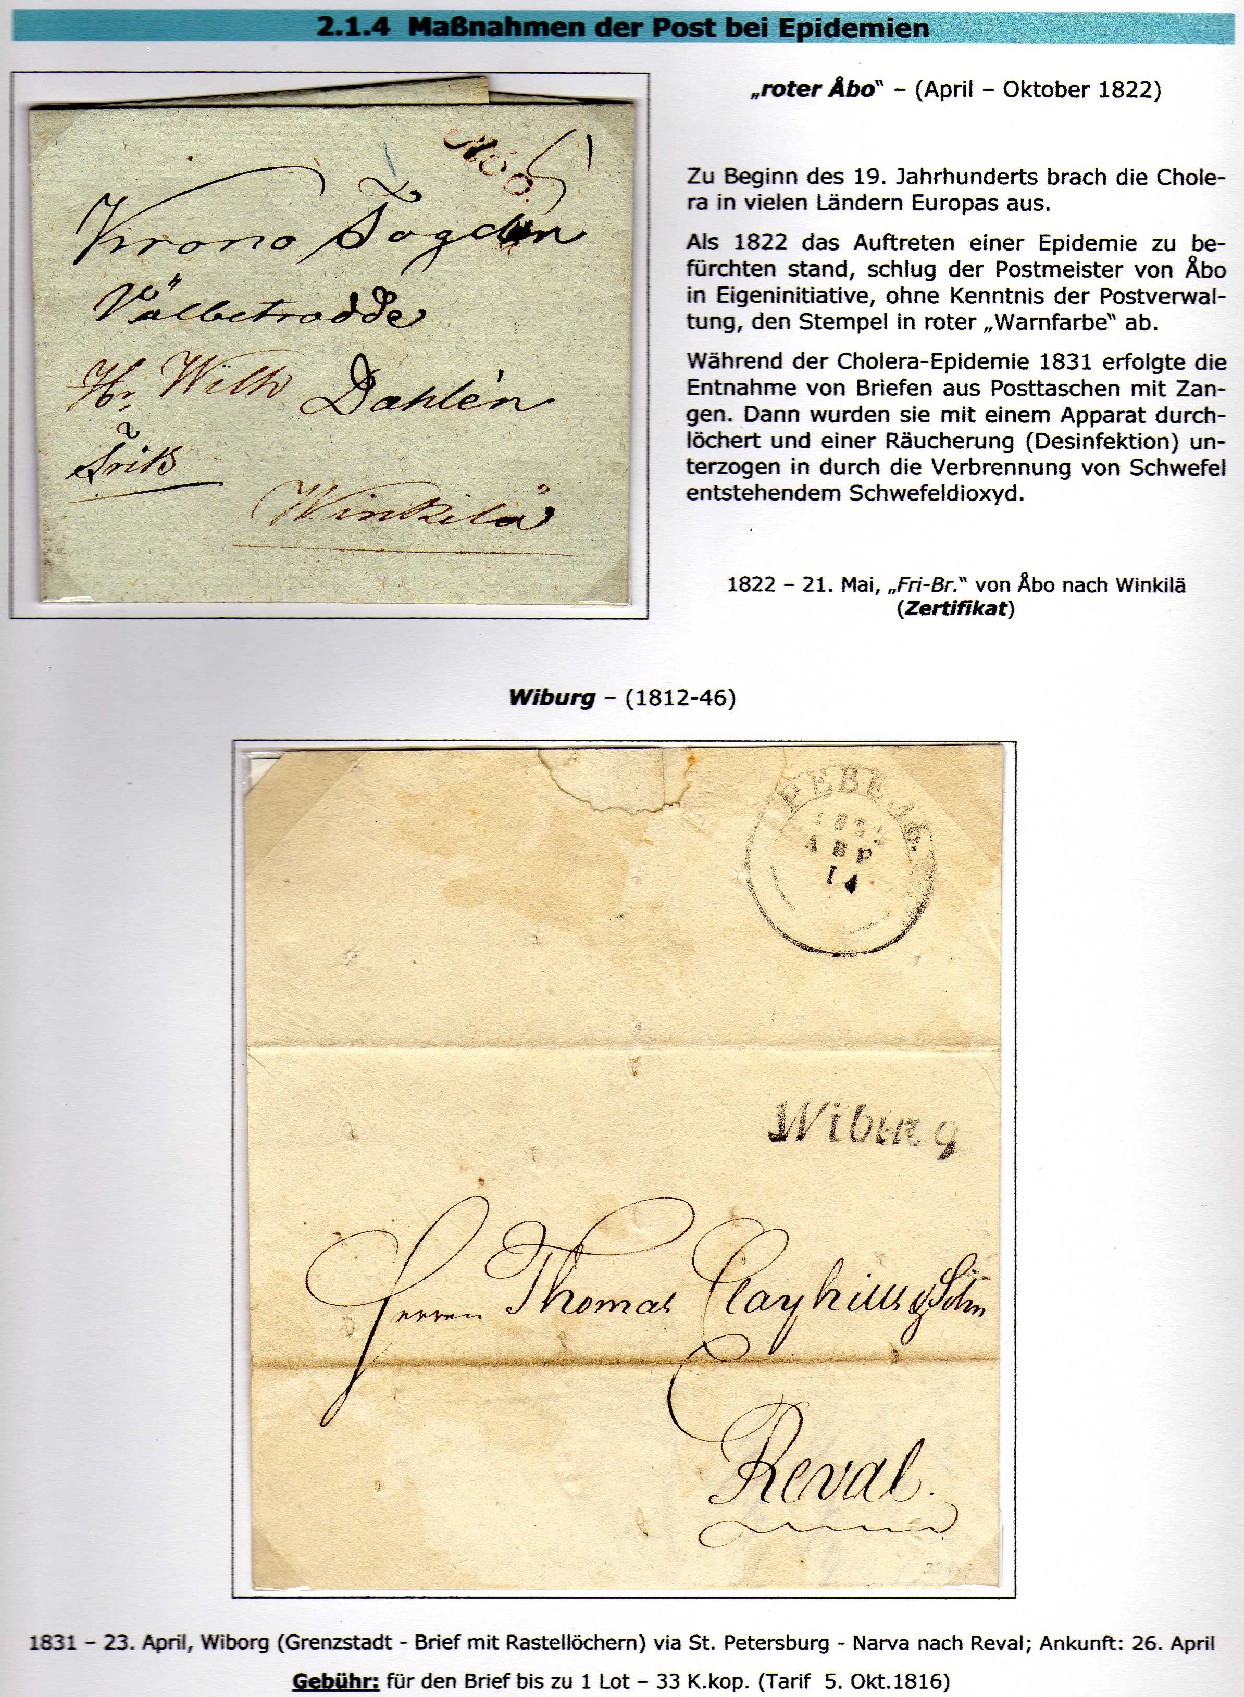 2.1.4 Maßnahmen der Post bei Epidemien
„roter Åbo“ – (April – Oktober 1822)
Zu Beginn des 19. Jahrhunderts brach die Chole-
ra in vielen Ländern Europas aus.
Als 1822 das Auftreten einer Epidemie zu be-
fürchten stand, schlug der Postmeister von Åbo
in Eigeninitiative, ohne Kenntnis der Postverwal-
tung, den Stempel in roter „Warnfarbe“ ab.
Während der Cholera-Epidemie 1831 erfolgte die
Entnahme von Briefen aus Posttaschen mit Zan-
gen. Dann wurden sie mit einem Apparat durch-
löchert und einer Räucherung (Desinfektion) un-
terzogen in durch die Verbrennung von Schwefel
entstehendem Schwefeldioxyd.
1822 – 21. Mai, „Fri-Br.“ von Åbo nach Winkilä
(Zertifikat)
Åbo
Krono Fogden
Välbetrodde
Hr. Wilh Dahlén
Winkilä
Wiburg – (1812-46)
АПР
14
Wiburg
Herren Thomas Clayhills & Sohn
Reval.
1831 – 23. April, Wiborg (Grenzstadt - Brief mit Rastellöchern) via St. Petersburg - Narva nach Reval; Ankunft: 26. April
Gebühr: für den Brief bis zu 1 Lot – 33 K.kop. (Tarif 5. Okt.1816)